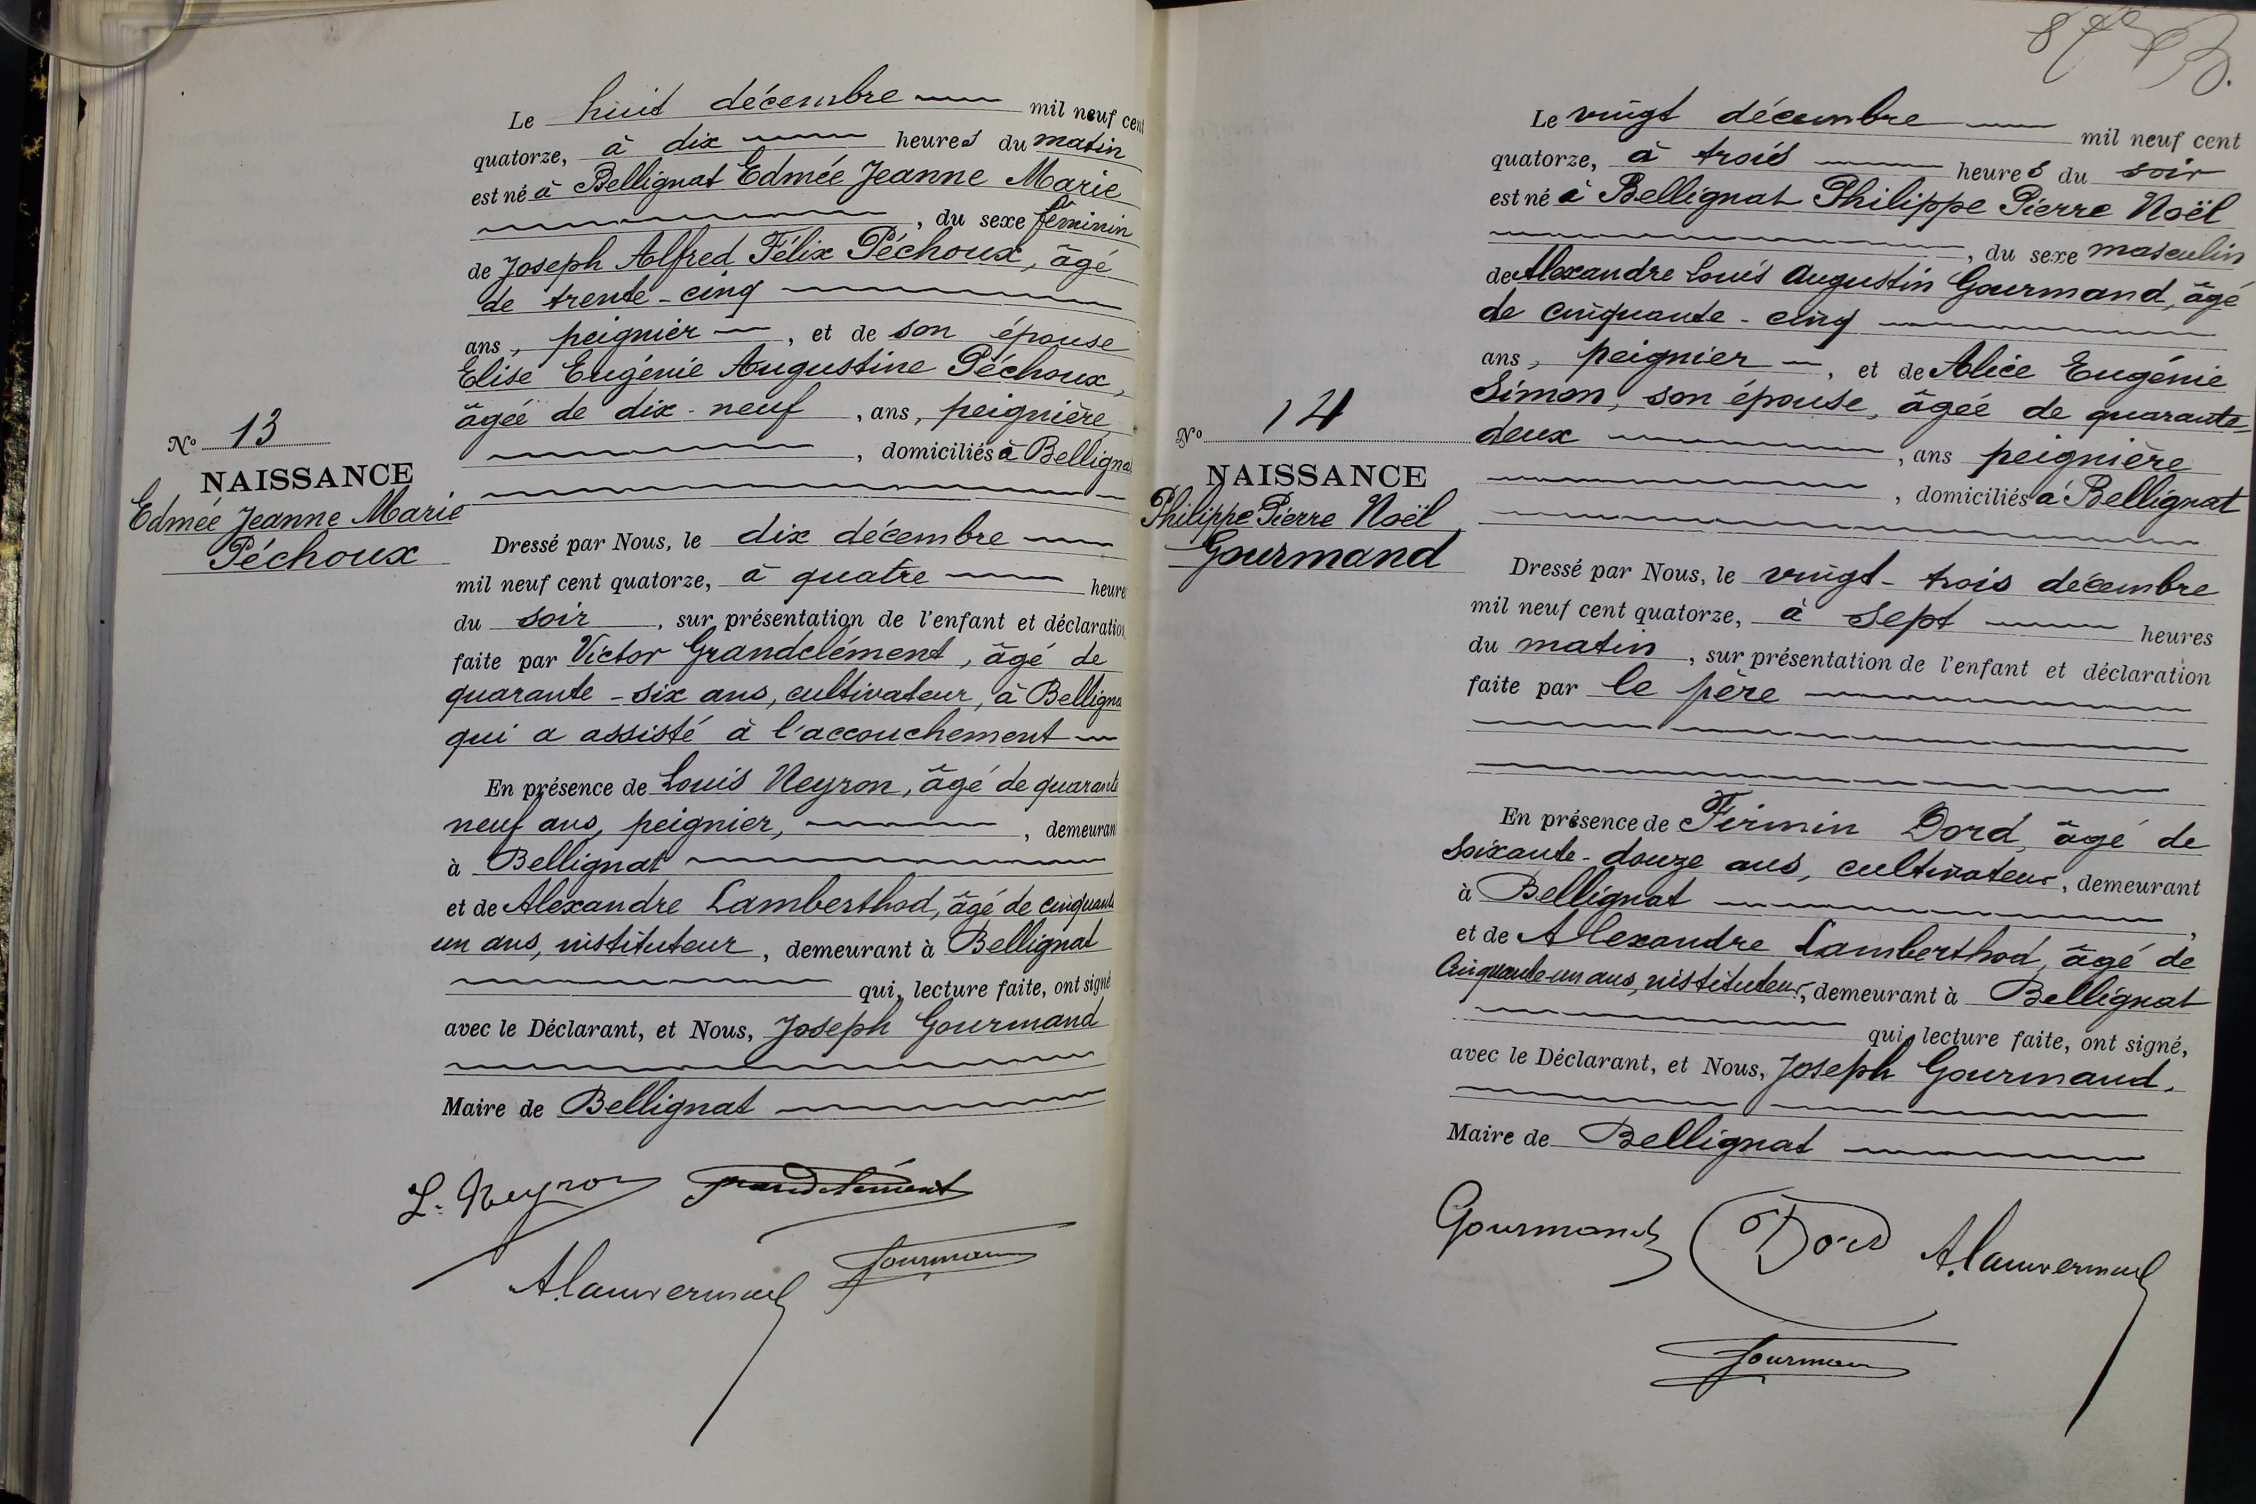 Le huit décembre mil neuf cent
quatorze, à dix heures du matin
est né à Bellignat Edmée Jeanne Marie
, du sexe féminin
de Joseph Alfred Félix Péchoux, âgé
de trente-cinq
ans, peignier, et de son épouse
Elise Eugénie Augustine Péchoux,
âgée de dix-neuf, ans, peignière
, domiciliés à Bellignat
No 13
NAISSANCE
Edmée Jeanne Marie
Péchoux
Dressé par Nous, le dix décembre
mil neuf cent quatorze, à quatre heures
du soir, sur présentation de l'enfant et déclaration
faite par Victor Grandclément, âgé de
quarante-six ans, cultivateur, à Bellignat
qui a assisté à l'accouchement
En présence de Louis Neyron, âgé de quarante
neuf ans, peignier, , demeurant
à Bellignat
et de Alexandre Lamberthod, âgé de cinquante
un ans, instituteur, demeurant à Bellignat
qui, lecture faite, ont signé
avec le Déclarant, et Nous, Joseph Gourmand
Maire de Bellignat
L. Neyron Grandclément
Gourmand
Le vingt décembre mil neuf cent
quatorze, à trois heures du soir
est né à Bellignat Philippe Pierre Noël
, du sexe masculin
de Alexandre Louis Augustin Gourmand, âgé
de cinquante-cinq
ans, peignier, et de Alice Eugénie
Simon, son épouse, âgée de quarante-
deux , ans peignière
, domiciliés à Bellignat
No 14
NAISSANCE
Philippe Pierre Noël
Gourmand
Dressé par Nous, le vingt-trois décembre
mil neuf cent quatorze, à sept heures
du matin, sur présentation de l'enfant et déclaration
faite par le père
En présence de Firmin Dord, âgé de
soixante-douze ans, cultivateur, demeurant
à Bellignat ,
et de Alexandre Lamberthod, âgé de
cinquante-un ans, instituteur, demeurant à Bellignat
qui, lecture faite, ont signé,
avec le Déclarant, et Nous, Joseph Gourmand,
Maire de Bellignat
Gourmand Dord
Gourmand